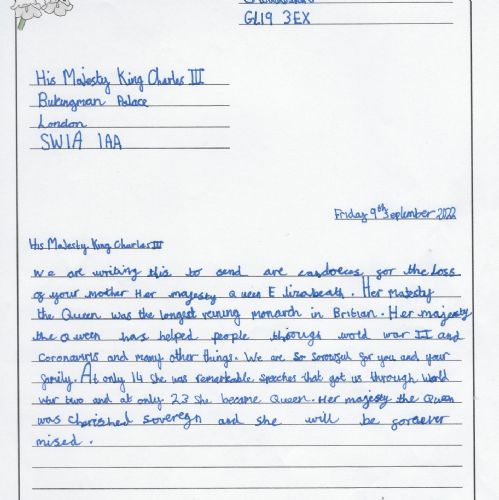 GL19 3EX
His Majesty King Charles III
Bukingman Palace
London
SW1A 1AA
Friday 9th September 2022
His Majesty King Charles III
We are writing this to send are condoeces for the loss
of your mother Her majesty Queen Elizabeath. Her Majesty
the Queen was the longest reining monarch in Britian. Her majesty
the Queen has helped people through world war II and
coronaviris and many other things. We are so soroouful for you and your
family. At only 14 she was remarkable speeches that got us through world
war two and at only 23 she became Queen. Her majesty the Queen
was cherished soveregn and she will be foraever
missed.